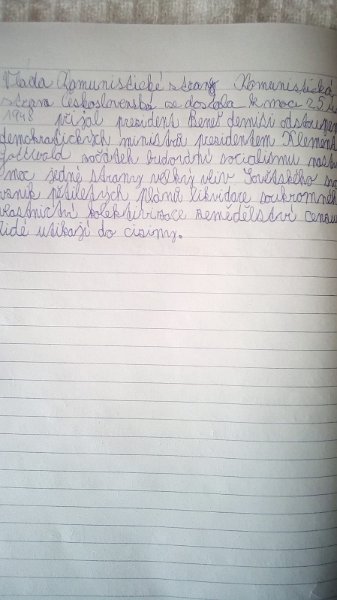 Vláda Komunistické strany Komunistická
strana Československa se dostala k moci 25.
1948 přijal president Beneš demisi odstoupen
demokratických ministrů presidentem Klement
Gottwald začátek budování socialismu nast
moc jedné strany velký vliv Sovětského sva
vznik pětiletých plánů likvidace soukromnéh
vlastnictví kolektivizace zemědělství cenzu
lidé utíkají do ciziny.